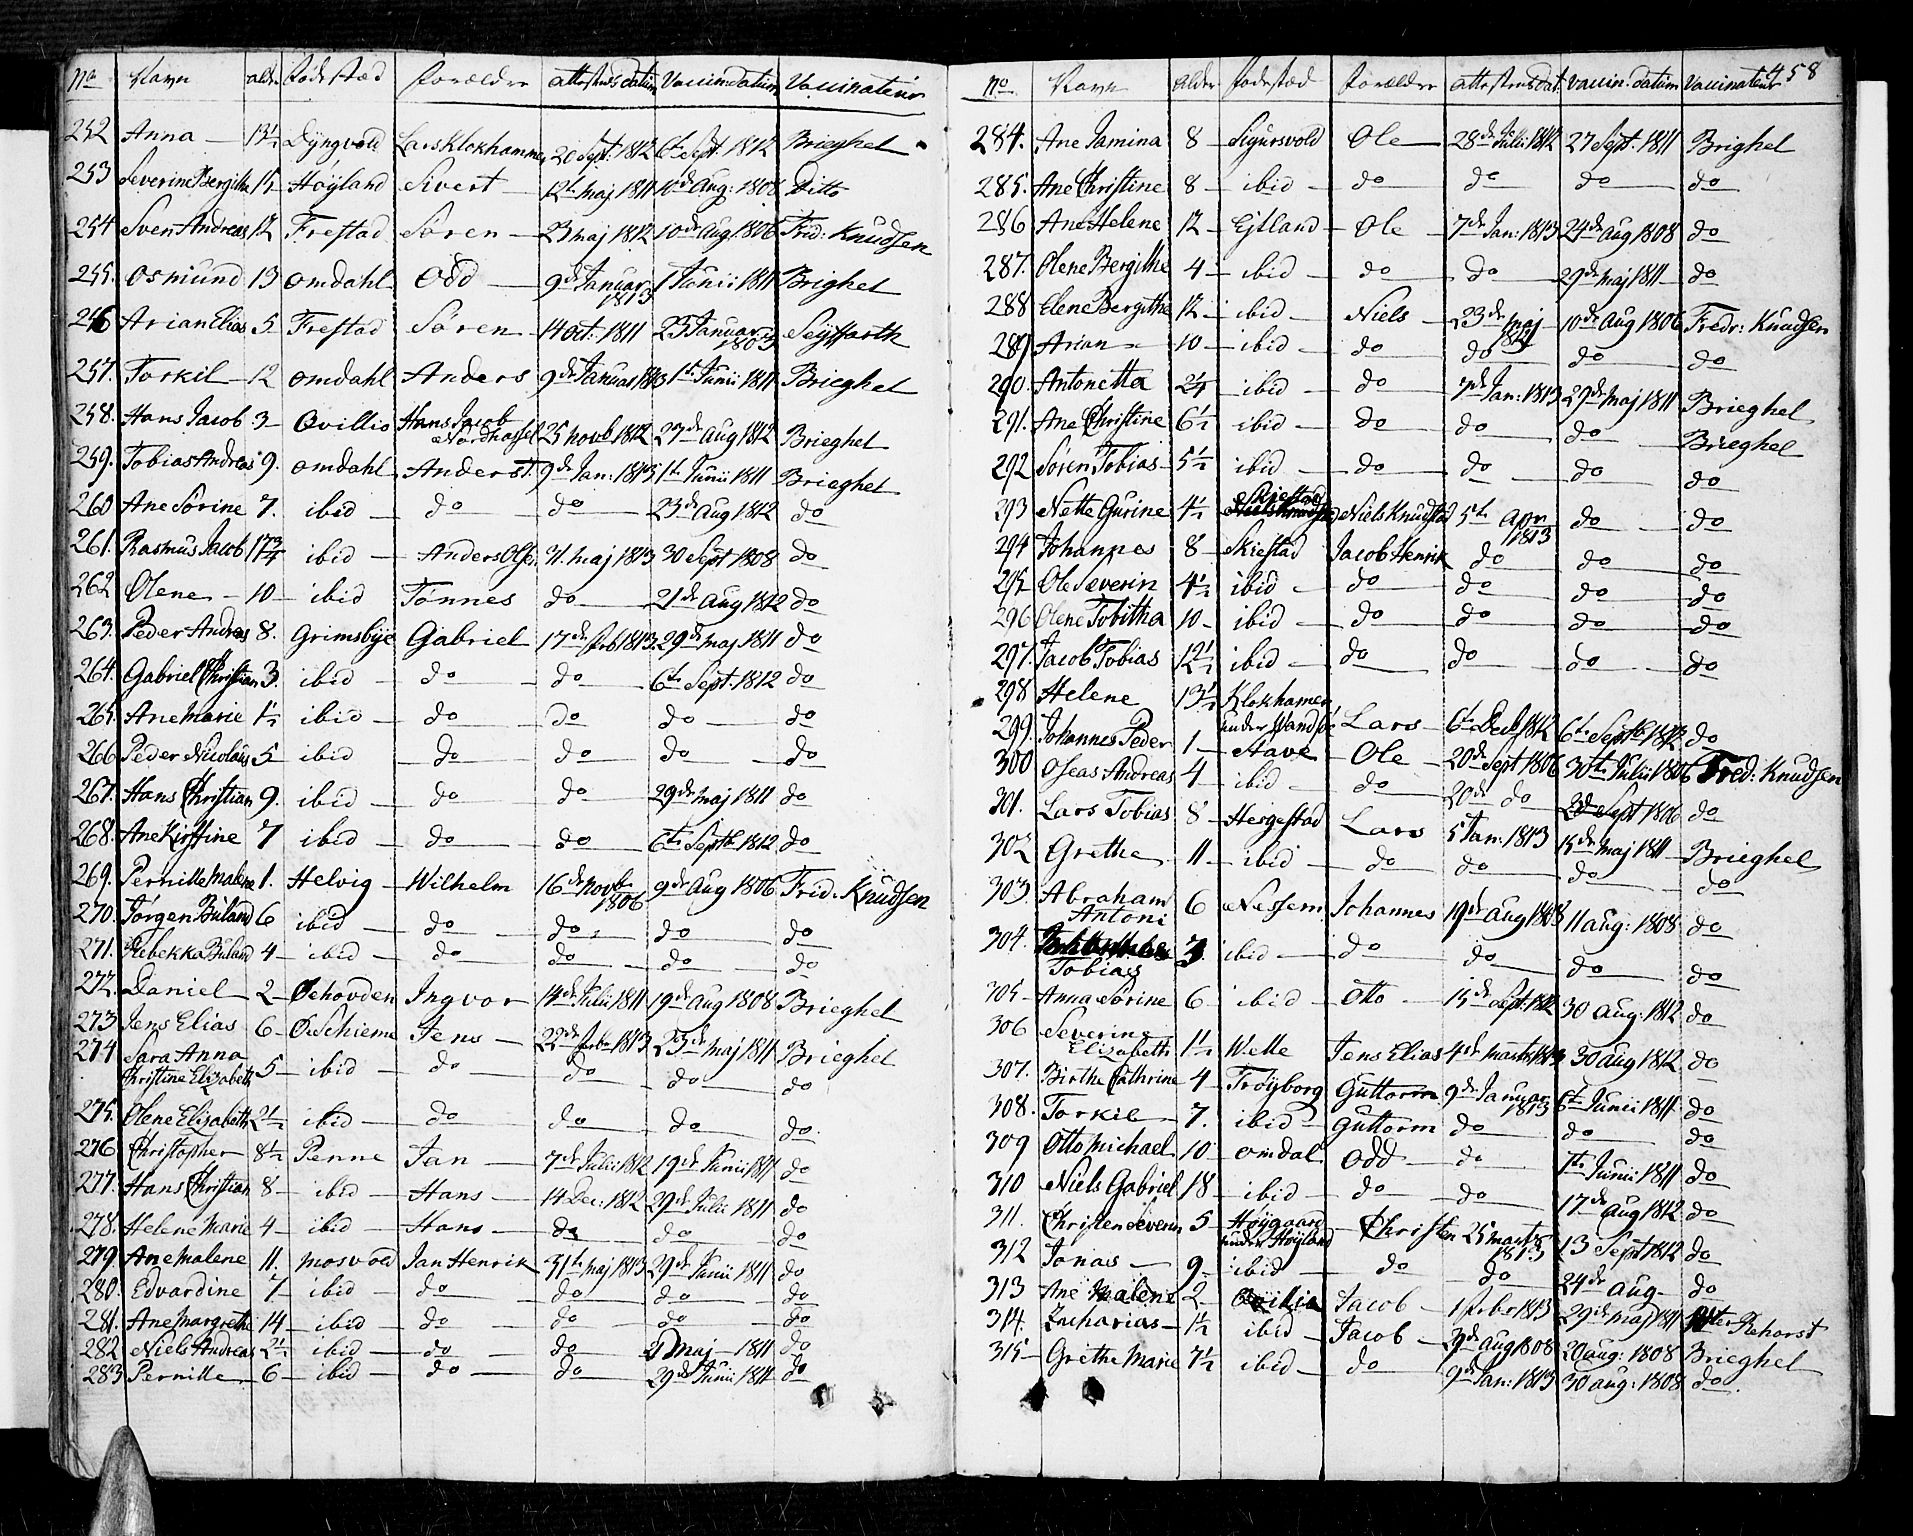 No Navn alder fødestæd forældre attestens datum Vaccin: datum Vaccinateur
252 Anna — 13½ Dÿngvold Lars Klokhammer 20 Sept: 1812 6te Sept 1812 Brieghel
253 Severine Bergitte Høÿland Sivert — 12te maj 1811 10de Aug: 1808 Ditto
254 Sven Andreas 12 Frestad Sören — 23 maj 1812 10de Aug 1806 Frid: Knudsen
255. Osmund 13 Omdahl Odd — 9de Januar 1813 1 Junii 1811 Brighel
256 Arian Elias 5 Frestad Sören — 14 oct: 1811 23 Januar 1803 Seÿffarth
257. Torkil — 12 Omdahl Anders 9de Januar 1813 1te Junii 1811 Brieghel
258. Hans Jacob 3 — Qvillio Hans Jacob Nordhassel 25 novb 1812 27de Aug 1812 Brieghel
259. Tobias Andreas 9. Omdahl Anders T. 9de Jan: 1813 1te Junii 1811 Brieghel
260 Ane Sörine 7. ibid — do — do — 23de Aug 1812 do
261. Rasmus Jacob 17¾ ibid — Anders Olsen 31. maj 1813 30 Sept 1808 do
262 Olene — 10 — ibid Tønnes do — 21de Aug 1812 do
263. Peder Andreas 8. Grimsbÿe Gabriel 17de febr 1813. 29de maj 1811 do
264. Gabriel Christian 3. ibid — do — do — 6te Sept. 1812 do
265. Ane Marie 1½ ibid — do — do — do — do
266 Peder Nicolaus 5 — ibid do — do — do — do
267. Hans Christian 9. ibid — do — do — 29de maj 1811 do
268. Ane Kirstine 7 ibid — do — do — 6te Septb 1812 do
269. Pernille Malene 1. Helvig — Wilhelm 16de novb 1806 9de Aug 1806 Frid: Knudsen
270. Jørgen Büland 6 ibid — do — do — do — do
271. Rebekka Büland 4 — ibid — do — do — do — do
272. Daniel — 2 — Øehovden Ingvor — 14de Julii 1811 19de Aug 1808 Brieghel
273 Jens Elias 6 — Jens — 22de febr 1813 23de maj 1811 Brieghel
274 Sara Anna Christine Elizabeth 5 — ibid — do — do — do — do
275. Olene Elizabeth 2½ ibid — do — do — do — do.
276 Christopher — 8½ Penne Jan — 7de Julii 1812 19de Junii 1811 do
277. Hans Christian 8 — ibid — Hans — 14 Dec: 1812 29de Julii 1811 do
278. Helene Marie 4 — ibid — Hans — do — do — do
279. Ane Malene 11. Mosvold Jan Henrik 31te maj 1813 29de Junii 1811 do
280. Edvardine 7 — ibid — do — do — do — do
281. Ane Margrethe 14 — ibid — do — do — do — do
282 Niels Andreas 2½ ibid — do — do — maj — 1811 do
283 Pernille — 6 — ibid — do — do — 29de Junii 1811 do
458
No Navn alder fødestæd forældre attestens dat. vaccin. datum Vaccinateur
284. Ane Jamina 8 — Sigursvold Ole — 28de Julii 1812 27 Sept. 1811 Brighel
285. Ane Christine 8 — ibid — do — do — do — do
286 Ane Helene 12 — Ejtland — Ole — 7de Jan: 1813 24de Aug 1808 do
287. Olene Bergithe 4 — ibid — do — do — 29de maj 1811 — do
288 Elene Bergithe 12 — ibid — Niels — 23de maj 10de Aug 1806 Fredr: Knudsen
289 Arian — 10 — ibid — do — do — do — do
290. Antonetta ibid — do — 7de Jan: 1813 29de maj 1811 Brieghel
291. Ane Christine 6½ ibid — do — do — do — Brieghel
292 Sören Tobias — 5½ ibid — do — do — do — do
293 Nette Gurine 4½ Skiestad Niels Knudsen 5te Apr 1813 do — do
294 Johannes 8 — Skiestad Jacob Henrik do — do — do
295 Ole Severin 4½ ibid — do — do — do — do
296 Olene Tobitha 10 — ibid — do — do — do — do
297. Jacob Tobias 12½ ibid — do — do — do — do
298 Helene 13½ Klokhamer under Vandsø Lars — 6te Decb 1812 6te Septb 1812 do
299 Johannes Peder 1 — Stave — Ole — 20de Sept 1806 30te Julii 1806 Fred: Knudsen
300 Oseas Andreas 4 ibid — do — 20de do Sept 1806 do
301. Lars Tobias 8 — Hergestad Lars 5 Jan: 1813 15de maj 1811 — Brieghel
302 Grethe — 11 — ibid — do — do — do — do
303. Abraham Antoni 6 Nessem Johannes 19de Aug 1808 11 aug: 1808 do
304. Tobias 3. ibid — do — do — do — do
305 — Anna Sörine 6 ibid — Otto — 15de Sept: 1812 30 aug: 1812 do
306 Severine Elizabeth 1½ Welle Jens Elias 4de Marts 1813 30 aug 1812 do
307. Birthe Cathrine 4 — Trøÿborg Guttorm 9de Januar 1813 6te Junii 1811 do
308. Torkil — 7. ibid — Guttorm do — do — do
309 Otto Michael 10 — Omdal Odd — do — 1te Junii 1811 do
310 Niels Gabriel 18 — ibid — do — do — 17de Aug 1812 do
311. Christen Severin 5 Høÿgaard under Høÿland — Christen 25 marts 1813 13 Sept 1812 do
312 Jonas — 9 — ibid — do — do 24de Aug — do
313 Ane Malene 2 — Jacob — 1 febr 1813 29de maj 1811 Rehorst
314. Zacharias — 1½ ibid — Jacob — aug 1808 20 aug: 1808 Brieghel
315 — Grethe Marie 7½ ibid — do — 9de Jan: 1813 30 aug: 1808 do.